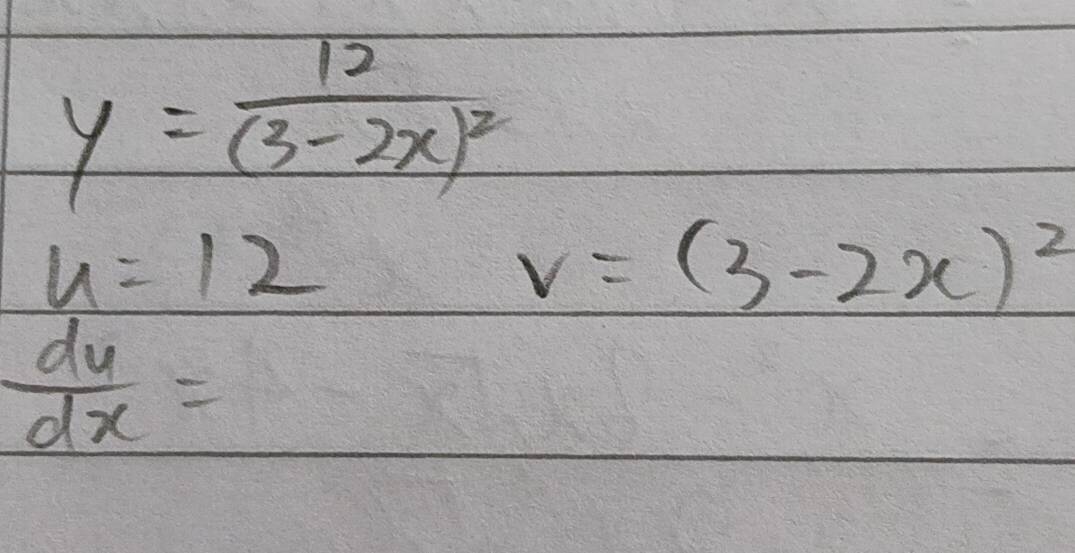 y = 12/(3-2x)²
u = 12 v = (3-2x)²
du/dx =